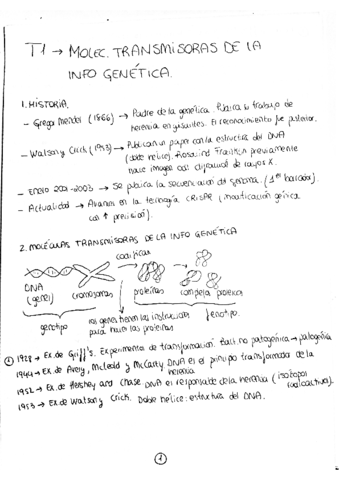 T1 → MOLEC. TRANSMISORAS DE LA
INFO GENÉTICA.
1. HISTORIA.
- Gregor Mendel (1866) → Padre de la genética. Publica su trabajo de
herencia en guisantes. El reconocimiento fue posterior.
- Watson y Crick (1953) → Publican un paper con la estructura del DNA
(doble hélice). Rosalind Franklin previamente
hace imágenes con difracción de rayos X.
- ENERO 2001-2003 → Se publica la secuenciación del genoma. (1er borrador).
- Actualidad → Avances en la tecnología CRISPR (modificación génica
con ↑ precisión).
2. MOLÉCULAS TRANSMISORAS DE LA INFO GENÉTICA
codifican
DNA
(genes)
cromosomas
proteínas
complejo proteico
genotipo
los genes tienen las instrucciones
para hacer las proteínas
fenotipo.
1928 → Ex. de Griff's. Experimento de transformación. Bact. no patogénica → patogénica
1944 → Ex. de Avery, McLeod y McCarty DNA es el principio transformador de la
herencia
1952 → Ex. de Hershey and Chase DNA es responsable de la herencia (isótopos
radioactivos).
1953 → Ex. de Watson y Crick. Doble hélice: estructura del DNA.
1